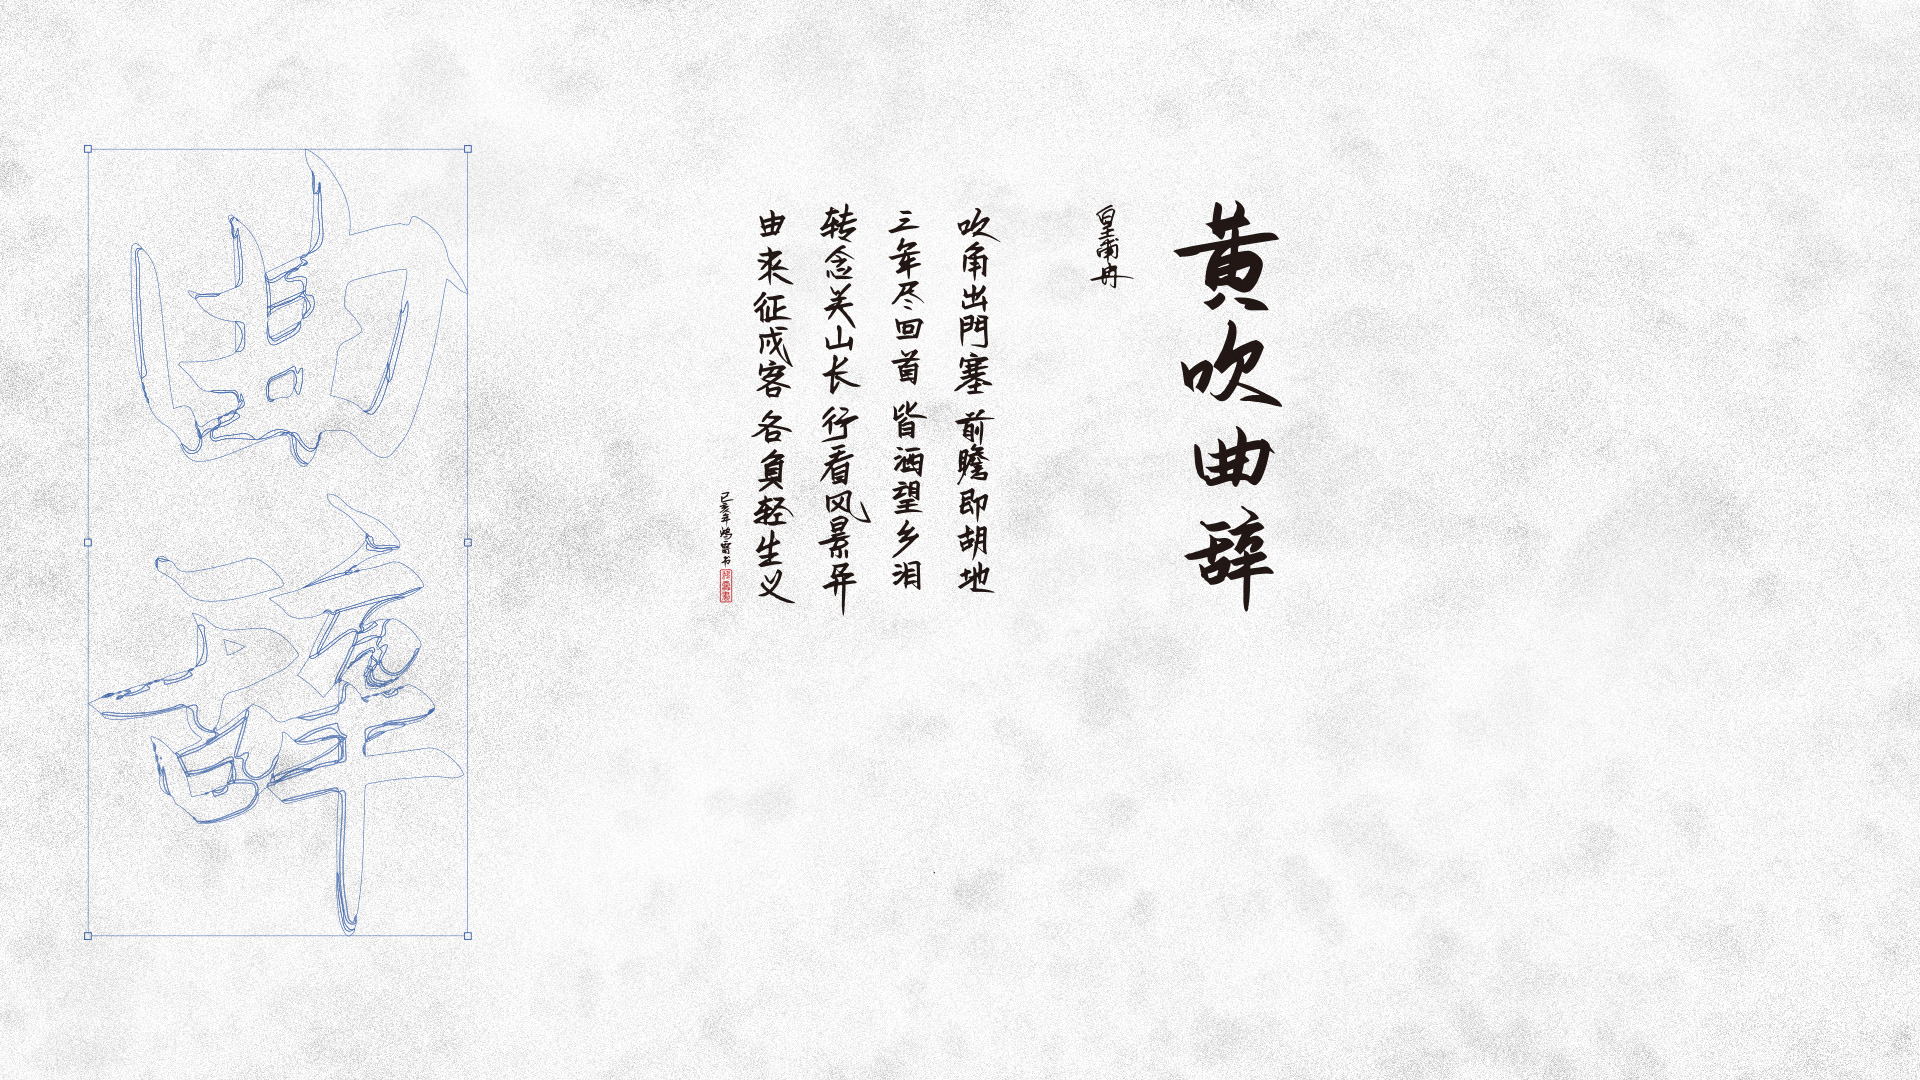 黄吹曲辞
皇甫冉
吹角出門塞前瞻即胡地
三年尽回首皆洒望乡泪
转念关山长行看风景异
由来征戍客各負轻生义
己亥年鸿霄书
曲辞